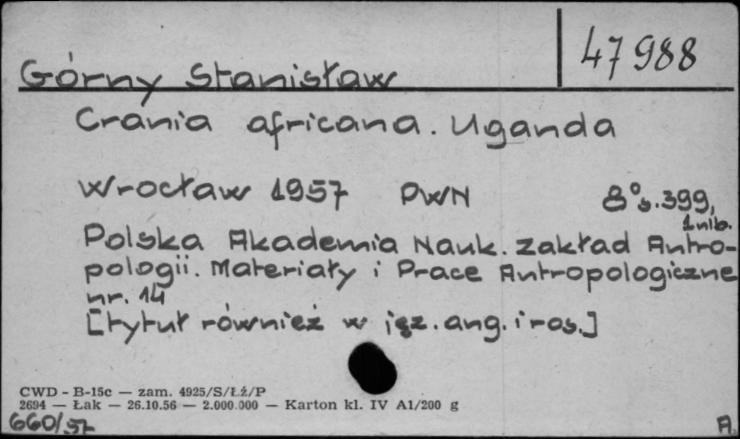 47988
Górny Stanisław
Crania africana. Uganda
Wrocław 1957 PWN 8° s. 399,
1 nlb.
Polska Akademia Nauk. Zakład Antro-
pologii. Materiały i Prace Antropologiczne
nr. 14
[tytuł również w jęz. ang. i ros.]
CWD - B-15c — zam. 4925/S/Łź/P
2694 — Łak — 26.10.56 — 2.000.000 — Karton kl. IV A1/200 g
660/57
A.